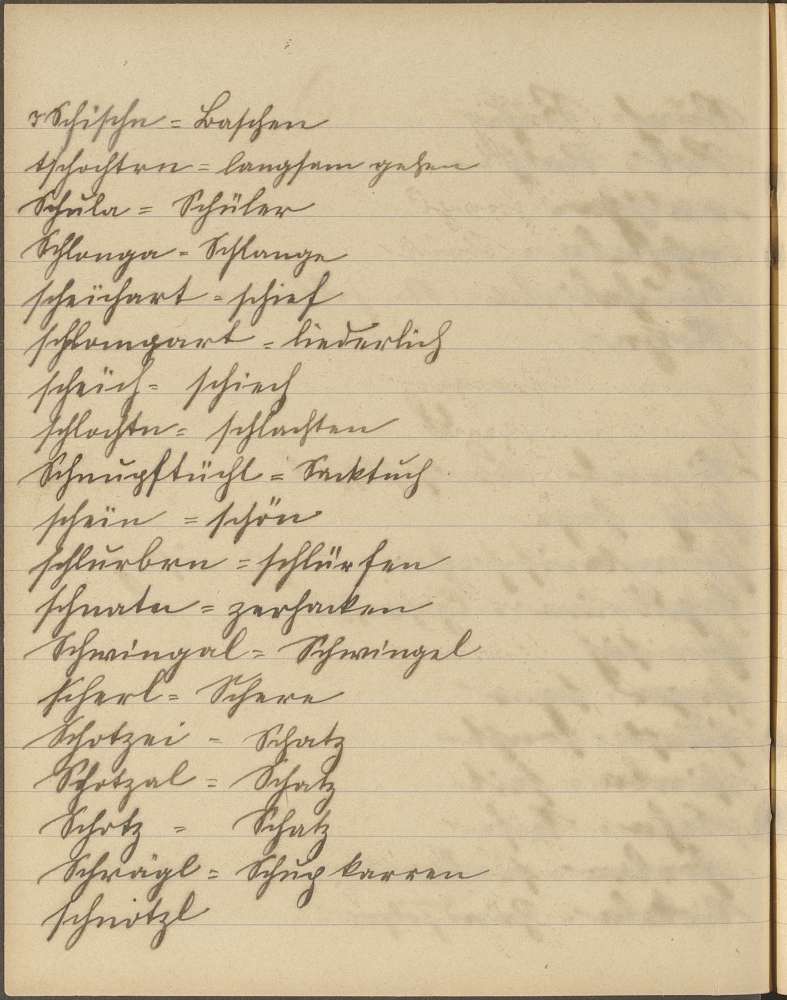 Schischn = Baschen
tschochtrn = langsam gehen
Schula = Schüler
Schlonga = Schlange
scheichart = schief
schlompart = liederlich
scheich = schiech
schlochtn = schlachten
Schnupftüchl = Sacktuch
schein = schön
schlurbrn = schlürfen
schnatn = zerhacken
Schwingal = Schwingel
Scherl = Schere
Schotzei = Schatz
Schotzal = Schatz
Schotz = Schatz
Schrägl = Schupkarren
schnitzl